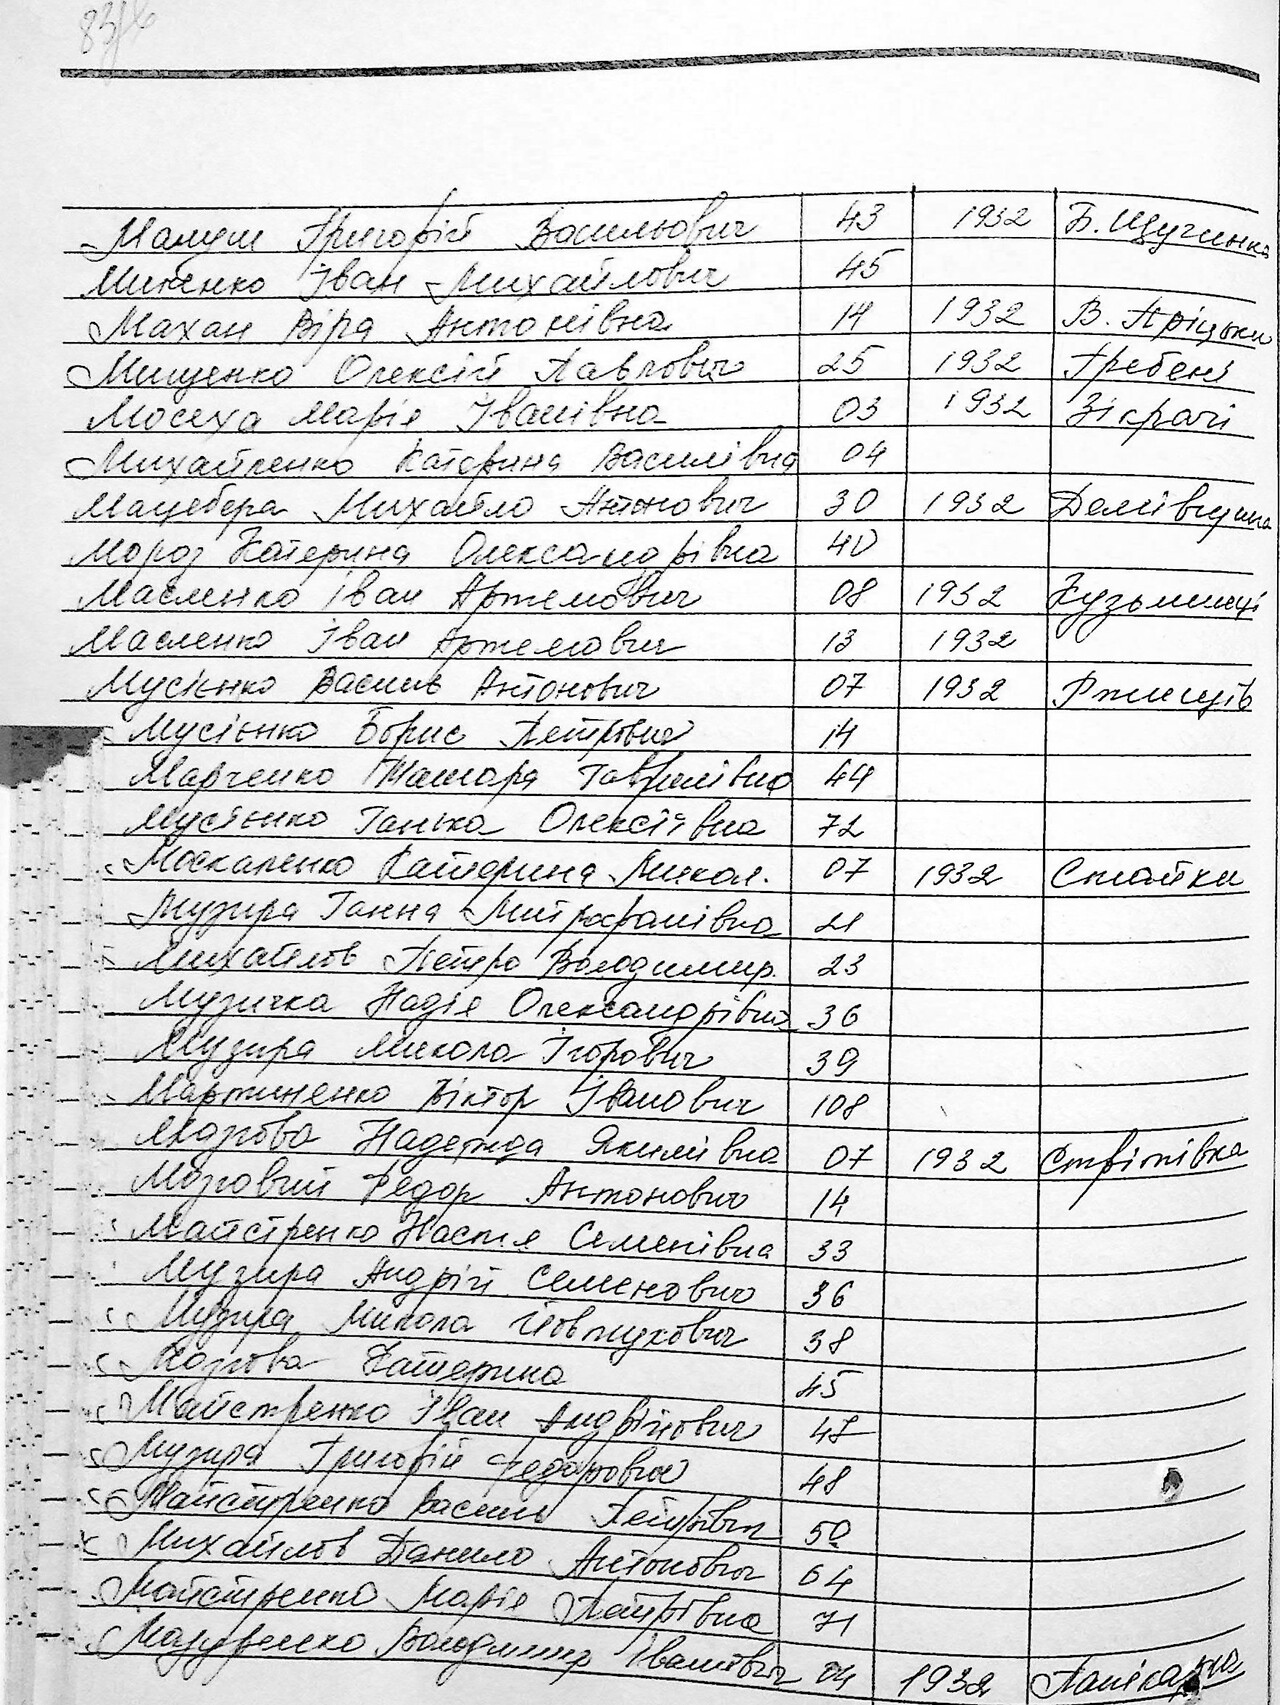 83/6
Малуш Григорій Васильович 43 1932 Б. Щучинка
Миненко Іван Михайлович 45
Махан Віра Антонівна 14 1932 В. Пріцьки
Мищенко Олексій Павлович 25 1932 Гребені
Мосиха Марія Іванівна 03 1932 Зікрачі
Михайленко Катерина Василівна 04
Мацебера Михайло Антонович 30 1932 Демівщина
Мороз Катерина Олександрівна 40
Масленко Іван Артемович 08 1932 Кузьминці
Масленко Іван Артемович 13 1932
Мусієнко Василь Антонович 07 1932 Ржищів
Мусієнко Борис Петрович 14
Марченко Тамара Гаврилівна 44
Мусієнко Ганька Олексіївна 72
Москаленко Катерина Микол. 07 1932 Стайки
Музира Ганна Митрофанівна 21
Михайлов Петро Володимир. 23
Музичка Надія Олександрівна 36
Музира Микола Ігорович 39
Мартиненко Віктор Іванович 108
Мозгова Надежда Якимівна 07 1932 Стріпівка
Мозговий Федор Антонович 14
Майстренко Настя Семенівна 33
Музира Андрій Семенович 36
Музира Микола Йовтухович 38
Мозгова Катерина 45
Майстренко Іван Андрійович 47
Музира Григорій Федорович 48
Майстренко Василь Петрович 50
Михайлов Данило Антонович 64
Майстренко Марія Петрівна 71
Володимир Іванович 04 1932